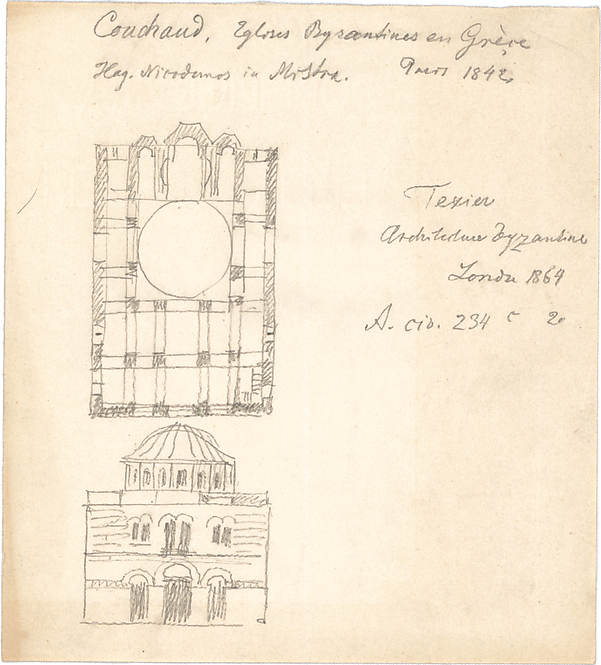 Couchaud, Eglises Byzantines en Grèce
Hag. Nicodemos in Mistra. Paris 1842.
Texier
Architecture byzantine
Londres 1864
A. civ. 234 c 20